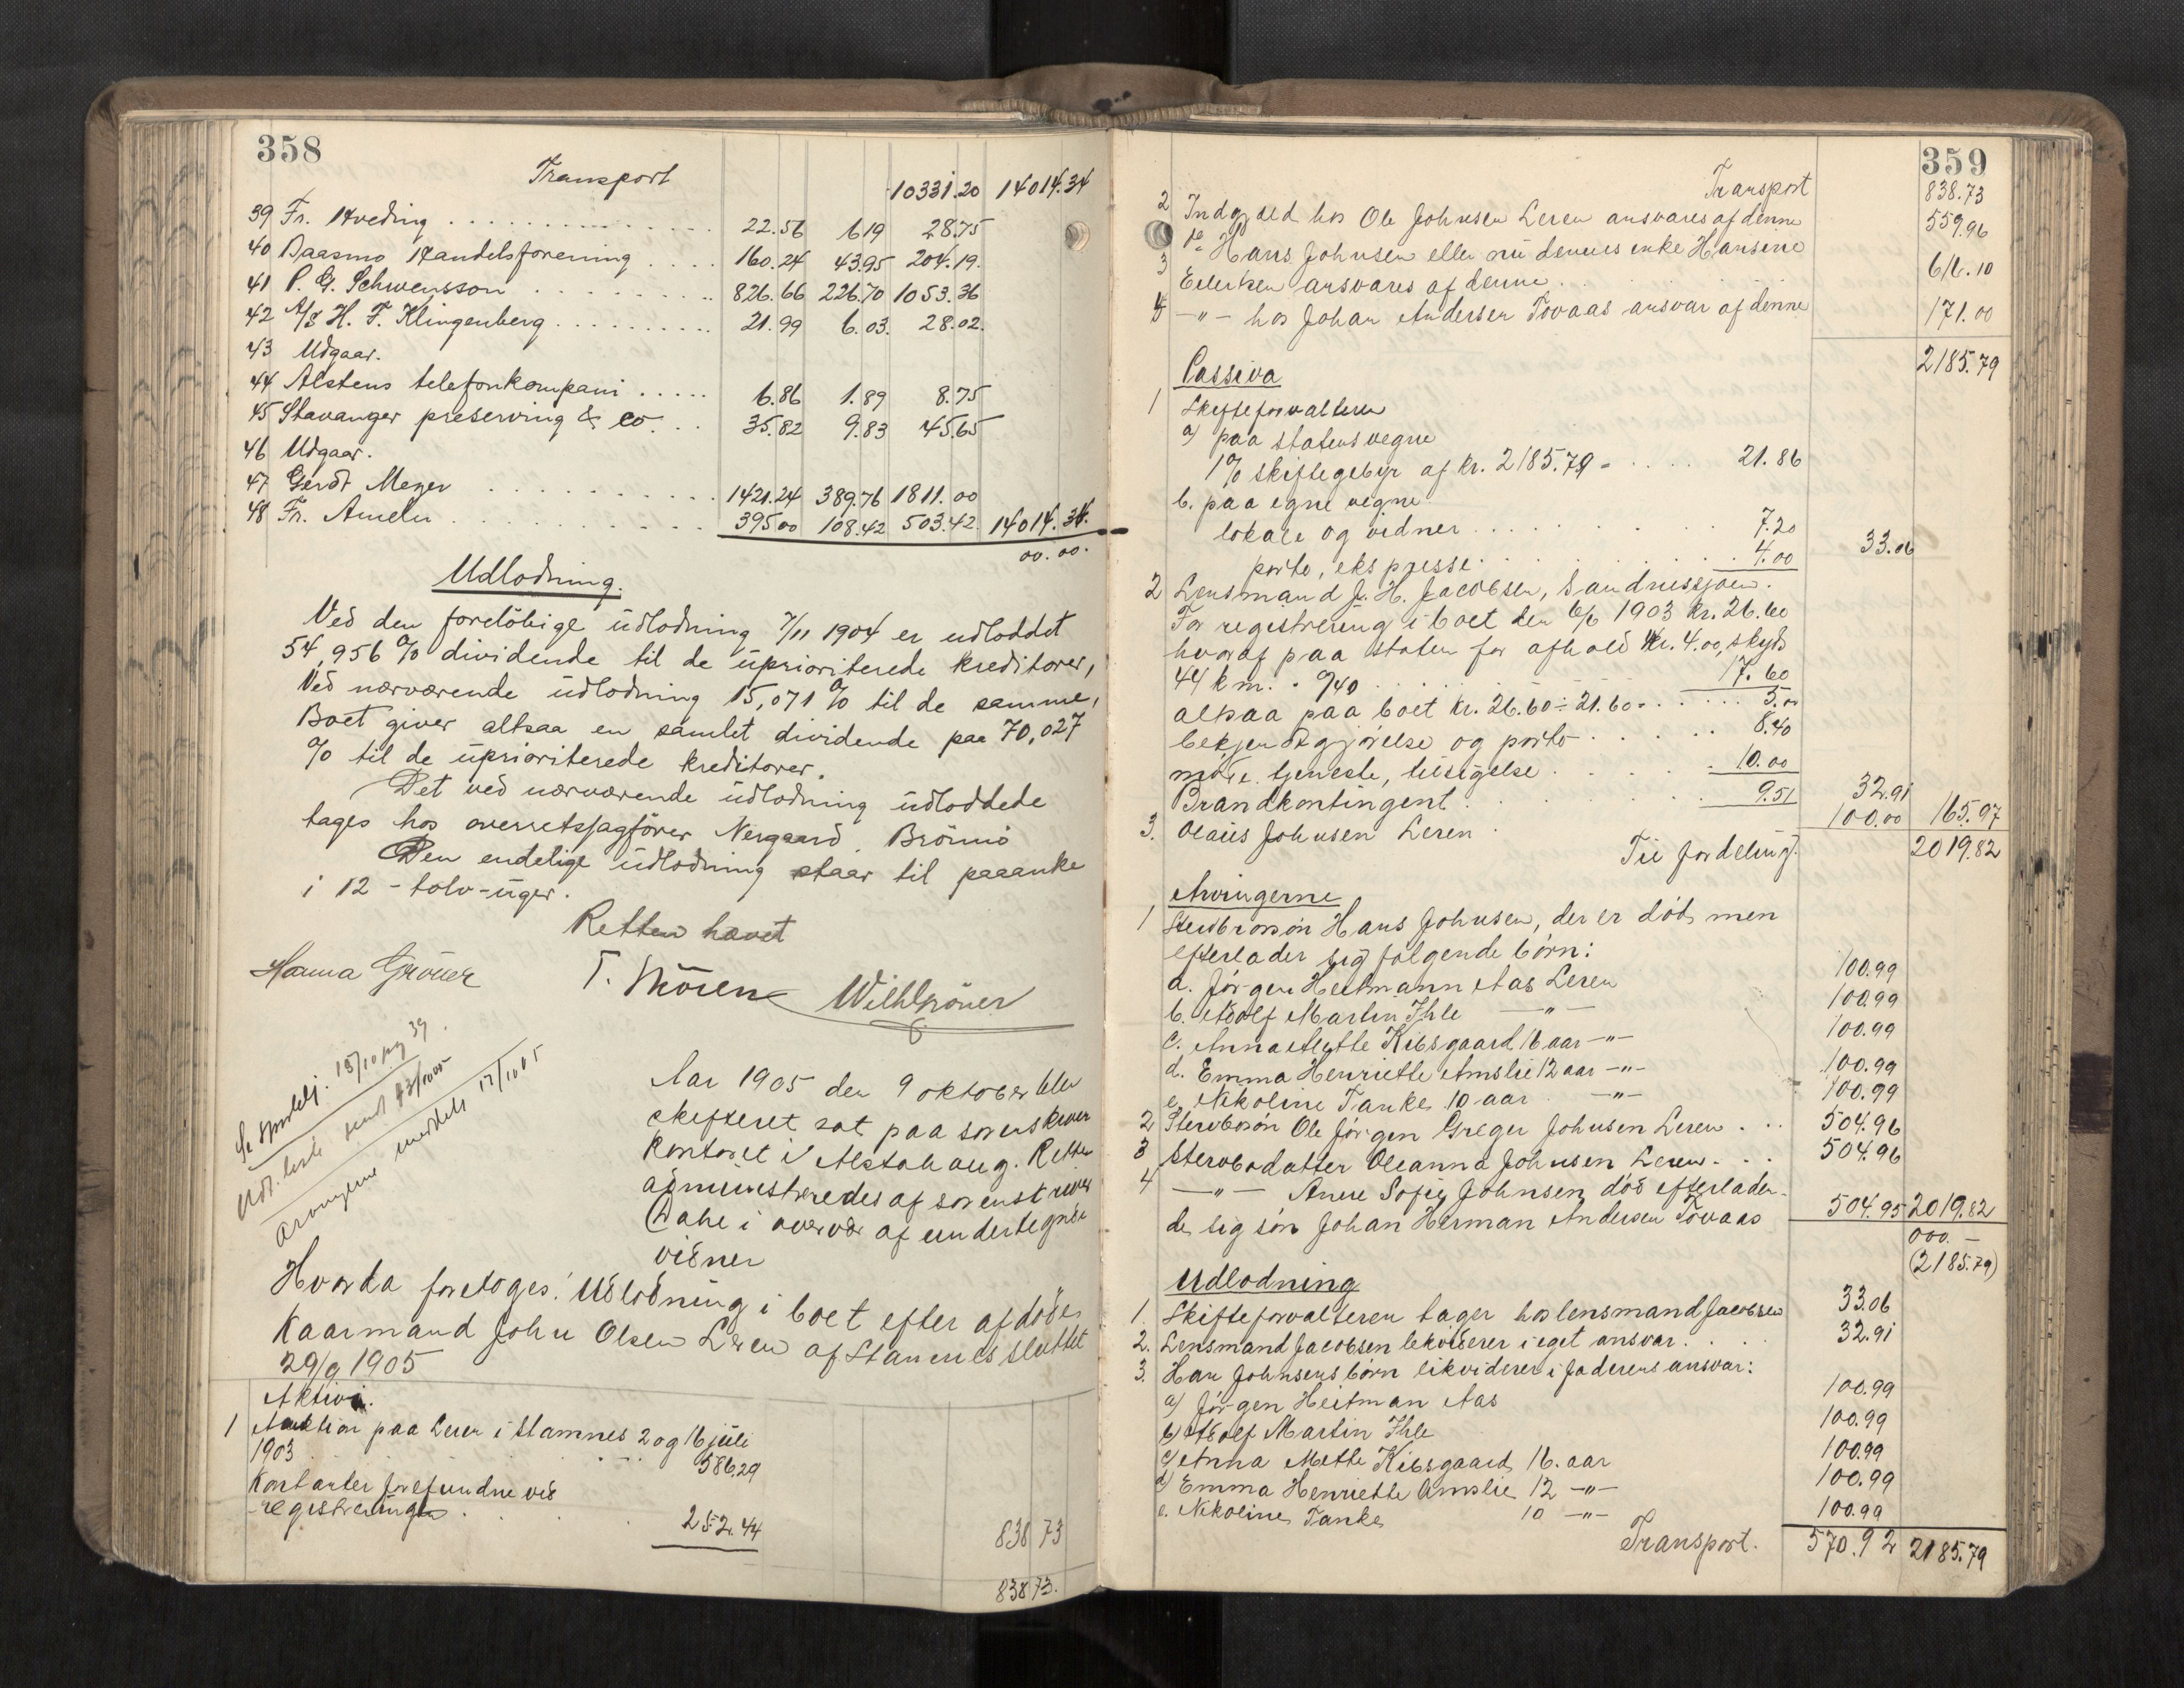 358
Transport 10331.20 14014.34
39 Fr. Hveding 22.56 619 28.75
40 Baasmo Handelsforening 160.24 43.95 204.19.
41 P. G. Schwensson 826.66 226.70 1053.36
42 A/S H. F. Klingenberg 21.99 6.03. 28.02.
43 Udgaar.
44 Alstens telefonkompani 6.86 1.89 8.75
45 Stavanger preserving & co. 35.82 9.83 45.65
46 Udgaar.
47 Gerdt Meyer 1421.24 389.76 1811.00
48 Fr. Ameln 395.00 108.42 503.42 14014.34.
00.00.
Udlodning.
Ved den foreløbige udlodning 7/11 1904 er udloddet
54,956 % dividende til de uprioriterede kreditorer,
Ved nærværende udlodning 15,071 % til de samme,
Boet giver altsaa en samlet dividende paa 70,027
% til de uprioriterede kreditorer.
Det ved nærværende udlodning udloddede
tages hos overretssagfører Nergaard. Brönnö
Den endelige udlodning staar til paaanke
i 12 - tolv - uger.
Retten hævet
Hanna Gröner T. Mören Wilh Gröner
13/10 pag 39.
Udl. liste sendt 13/10 05
arvingerne meddelt 17/10 05
Aar 1905 den 9 oktober blev
skifteret sat paa sorenskriver
kontoret i Alstahaug. Retten
administreredes af sorenskriver
Dahl i overvær af undertegnede
vidner
Hvorda foretoges: Udlodning i boet efter afdøde
Kaarmand John Olsen Leren af Stamnes sluttet
29/9 1905
Aktiva.
1 Auktion paa Leren i Stamnes 2 og 16 juli
1903 586.29
Kontanter forefundne ved
registreringen 252.44 838 73
838 73.
359
Transport 838.73
2 Indgjæld hos Ole Johnsen Leren ansvares af denne 559.96
3 do Hans Johnsen eller nu dennes enke Hansine
Eilertsen ansvares af denne 616.10
4 -"- hos Johan Andersen Tovaas ansvar af denne 171.00
2185.79
Passiva
1 Skifteforvalteren
a) paa statens vegne
1% skiftegebyr af kr. 2185.79 = 21.86
b. paa egne vegne
lokale og vidner 7.20
porto, ekspresse 4.00 33.06
2 Lensmand J. H. Jacobsen, Sandnessjøen.
For registrering i boet den 6/6 1903 kr. 26.60
hvoraf paa staten for ophold kr. 4.00, skyds
44 km. 0/40 17.60
altsaa paa boet kr. 26.60 ÷ 21.60 = 5.00
bekjendtgjørelse og porto 8.40
møde. tjeneste, tilsigelse 10.00
Brandkontingent 9.51 32.91
3. Olaus Johnsen Leren 100.00 165.97
Til fordeling. 2019.82
Arvingerne
1 Stervbosøn Hans Johnsen, der er død, men
efterlader sig følgende børn:
a. Jørgen Heitmann Aas Leren 100.99
b. Adolf Martin Ihle -"- 100.99
c. Anna Mette Kibsgaard 16 aar -"- 100.99
d. Emma Henriette Amslie 12 aar -"- 100.99
e. Nikoline Tanke 10 aar -"- 100.99
2 Stervbosøn Ole Jørgen Greger Johnsen Leren 504.96
3 Stervbodatter Oleanna Johnsen Leren 504.96
4 -"- Anne Sofie Johnsen, død efterladen-
de sig søn Johan Herman Andersen Tovaas 504.95 2019.82
000. -
(2185.79)
Udlodning
1. Skifteforvalteren tager hos lensmand Jacobsen 33.06
2. Lensmand Jacobsen likviderer i eget ansvar 32.91
3. Han Johnsens børn likviderer i faderens ansvar:
a) Jørgen Heitman Aas 100.99
b) Adolf Martin Ihle 100.99
c) Anna Mette Kibsgaard, 16. aar 100.99
d) Emma Henriette Amslie 12 -"- 100.99
e. Nikoline Tanke 10 -"- 100.99
Transport. 570.92 2185.79